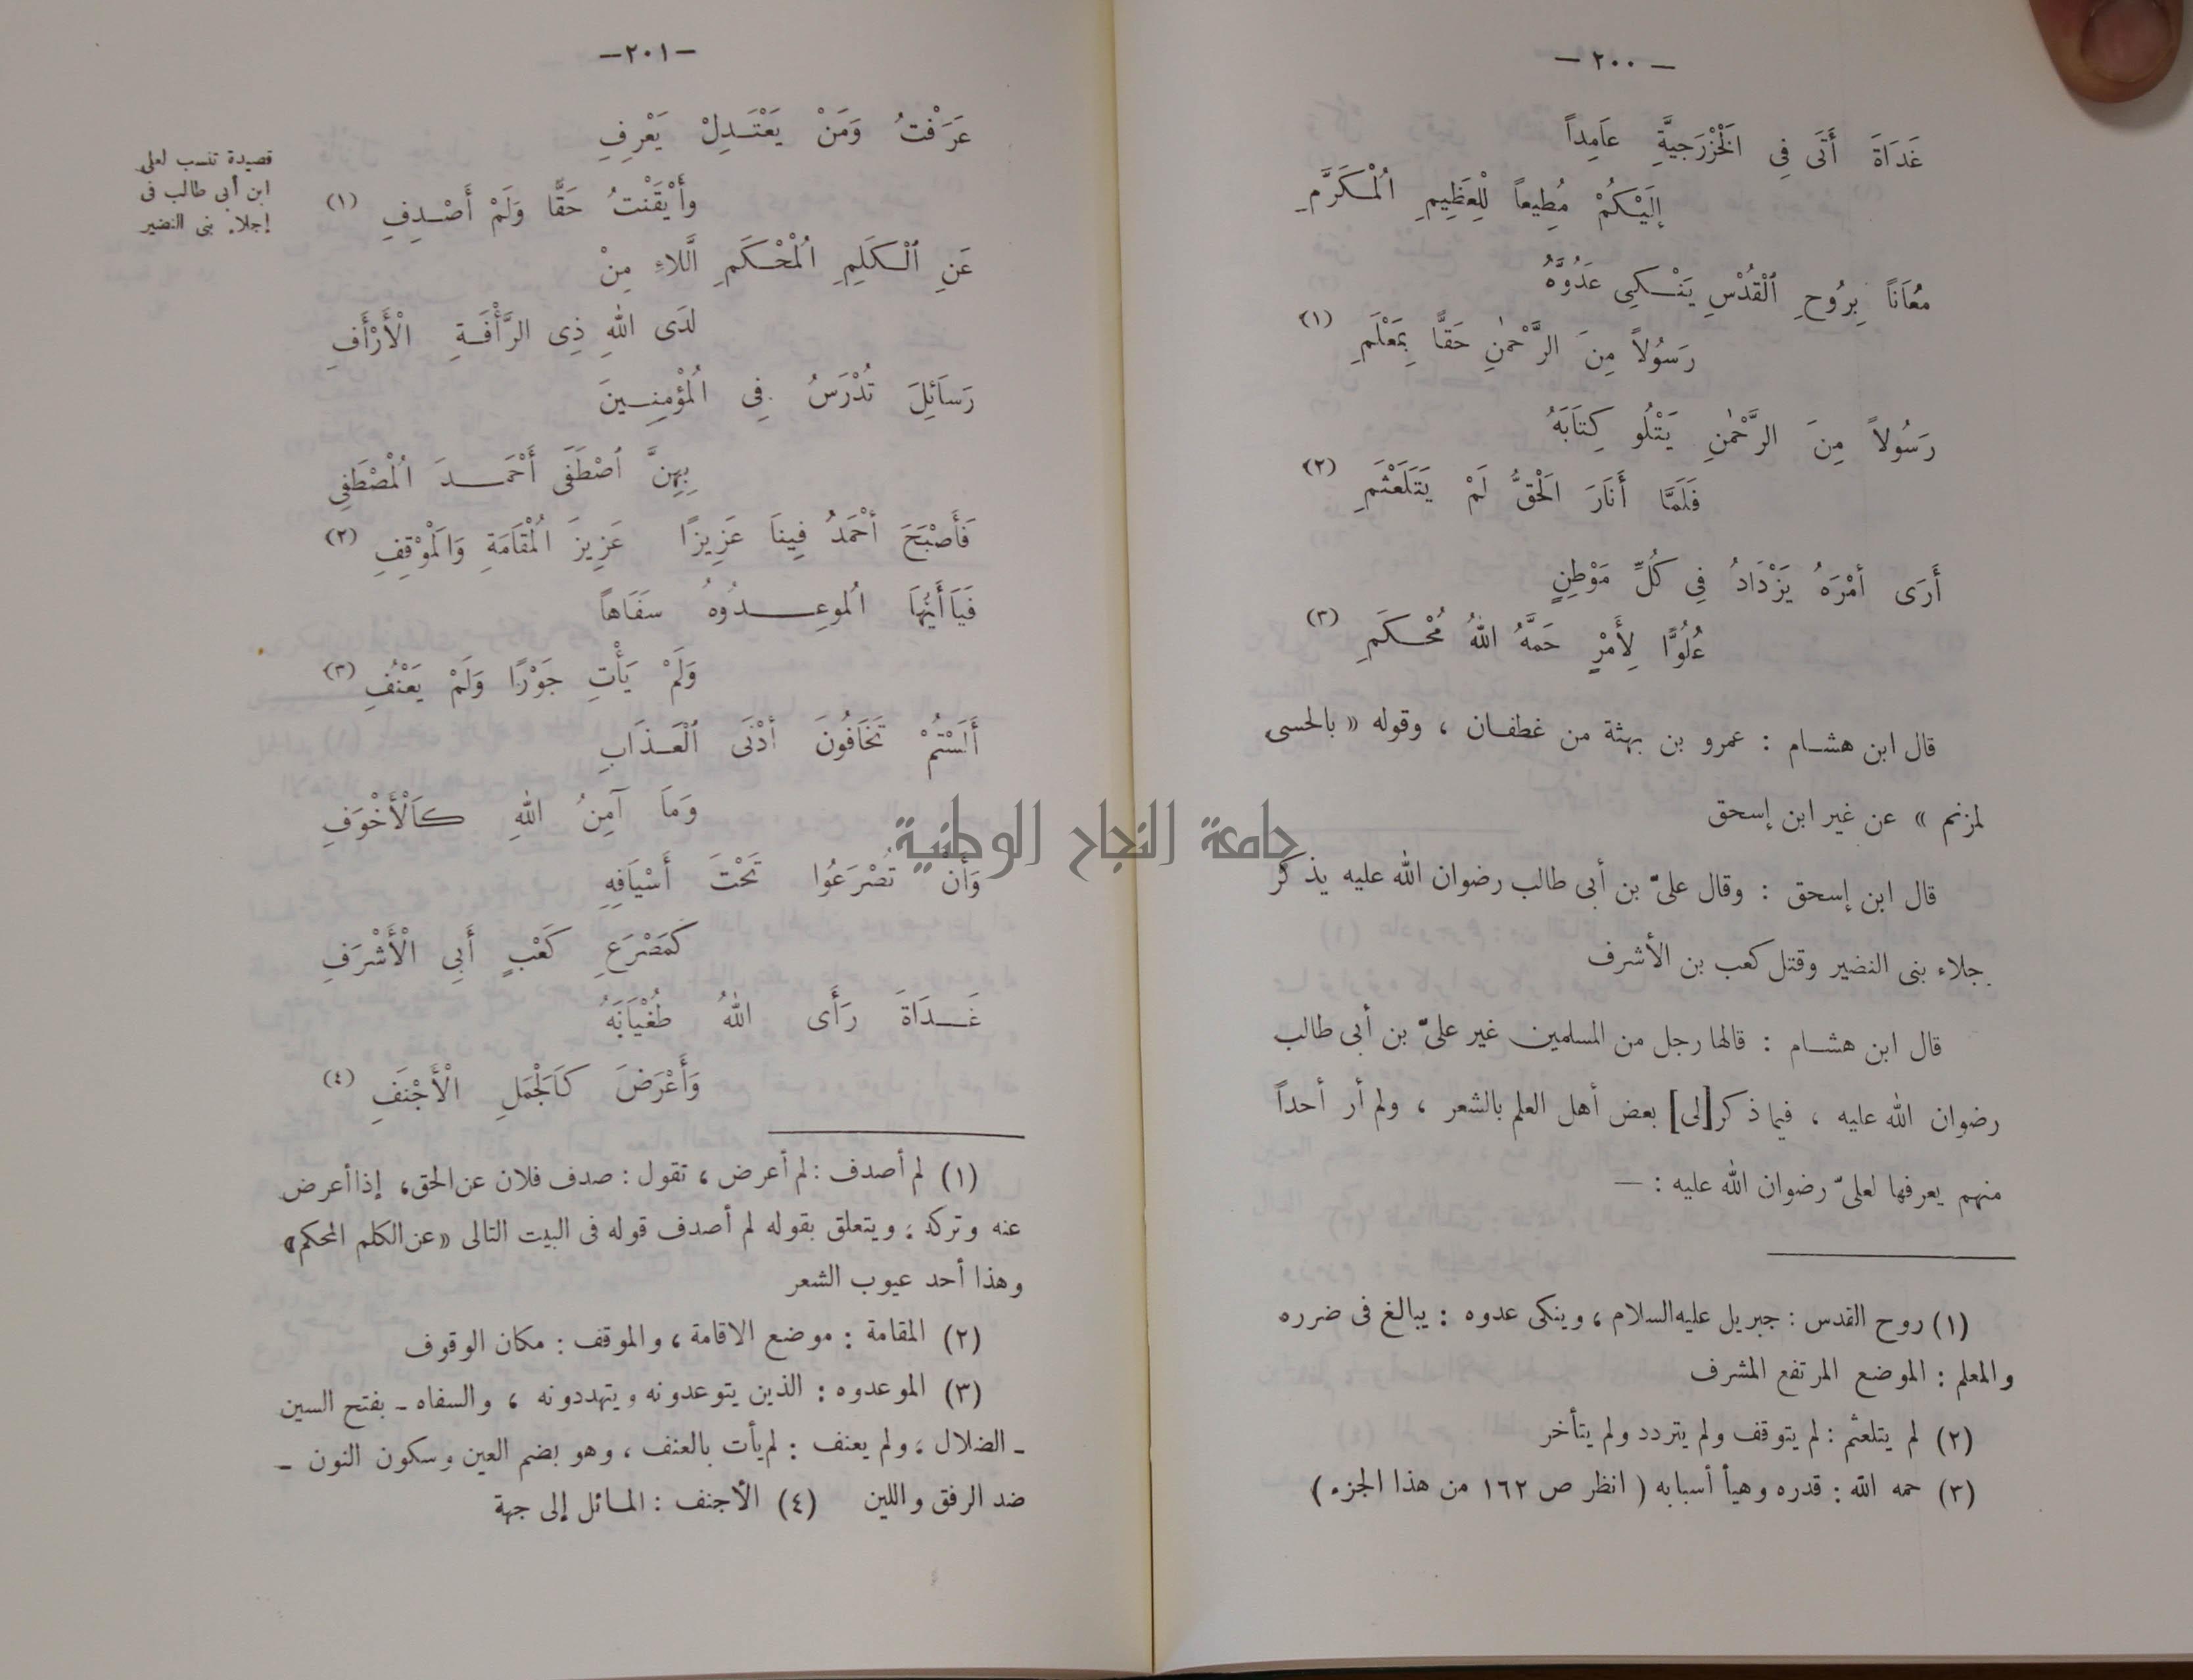 — ٢٠٠ —
غَدَاةَ أَتَى فِي الْخَزْرَجِيَّةِ عَامِداً
إلَيْكُمْ مُطِيعاً لِلْعَظِيمِ الْمُكَرَّمِ
مُعَاناً بِرُوحِ الْقُدْسِ يَنْكِي عَدُوَّهُ
رَسُولاً مِنَ الرَّحْمٰنِ حَقًّا بِمَعْلَمِ (١)
رَسُولاً مِنَ الرَّحْمٰنِ يَتْلُو كِتَابَهُ
فَلَمَّا أَنَارَ الْحَقُّ لَمْ يَتَلَعْثَمِ (٢)
أَرَى أمْرَهُ يَزْدَادُ فِي كُلِّ مَوْطِنٍ
عُلُوًّا لِأَمْرٍ حَمَّهُ اللهُ مُحْكَمِ (٣)
قال ابن هشام : عمرو بن بهثة من غطفان ، وقوله « بالحسى
لمزنم » عن غير ابن إسحق
قال ابن إسحق : وقال علىّ بن أبى طالب رضوان الله عليه يذكر
جلاء بنى النضير وقتل كعب بن الأشرف
قال ابن هشام : قالها رجل من المسلمين غير علىّ بن أبى طالب
رضوان الله عليه ، فيما ذكر[لى] بعض أهل العلم بالشعر ، ولم أر أحداً
منهم يعرفها لعلىّ رضوان الله عليه : —
(١) روح القدس : جبريل عليه السلام ، وينكى عدوه : يبالغ فى ضرره
والمعلم : الموضع المرتفع المشرف
(٢) لم يتلعثم : لم يتوقف ولم يتردد ولم يتأخر
(٣) حمه الله : قدره وهيأ أسبابه ( انظر ص ١٦٢ من هذا الجزء )
—٢٠١—
قصيدة تنسب لعلى
ابن أبى طالب فى
إجلاء بنى النضير
عَرَفْتُ وَمَنْ يَعْتَدِلْ يَعْرِفِ
وأَيْقَنْتُ حَقًّا وَلَمْ أَصْدِفِ (١)
عَنِ الْكَلِمِ الْمُحْكَمِ اللَّاءِ مِنْ
لَدَى اللهِ ذِى الرَّأْفَةِ الْأَرْأَفِ
رَسَائِلَ تُدْرَسُ فِى الْمُؤْمِنِينَ
بِهِنَّ اصْطَفَى أَحْمَدَ الْمُصْطَفِى
فَأَصْبَحَ أحْمَدُ فِينَا عَزِيزًا عَزِيزَ الْمُقَامَةِ وَالْمَوْقِفِ (٢)
فَيَا أَيُّهَا الْمُوعِدُوهُ سَفَاهاً
وَلَمْ يَأْتِ جَوْرًا وَلَمْ يَعْنُفِ (٣)
أَلَسْتُمْ تَخَافُونَ أدْنَى الْعَذَابِ
وَمَا آمِنُ اللهِ كَالْأَخْوَفِ
وَأَنْ تُصْرَعُوا تَحْتَ أَسْيَافِهِ
كَمَصْرَعِ كَعْبٍ أَبِي الْأَشْرَفِ
غَدَاةَ رَأَى اللهُ طُغْيَانَهُ
وَأَعْرَضَ كَالْجَمَلِ الْأَجْنَفِ (٤)
(١) لم أصدف : لم أعرض ، تقول : صدف فلان عن الحق ، إذا أعرض
عنه وتركه ؛ ويتعلق بقوله لم أصدف قوله فى البيت التالى « عن الكلم المحكم »
وهذا أحد عيوب الشعر
(٢) المقامة : موضع الاقامة ، والموقف : مكان الوقوف
(٣) الموعدوه : الذين يتوعدونه ويتهددونه ، والسفاه ـ بفتح السين
ـ الضلال ؛ ولم يعنف : لم يأت بالعنف ، وهو بضم العين وسكون النون ـ
ضد الرفق واللين (٤) الأجنف : المائل إلى جهة
جامعة النجاح الوطنية